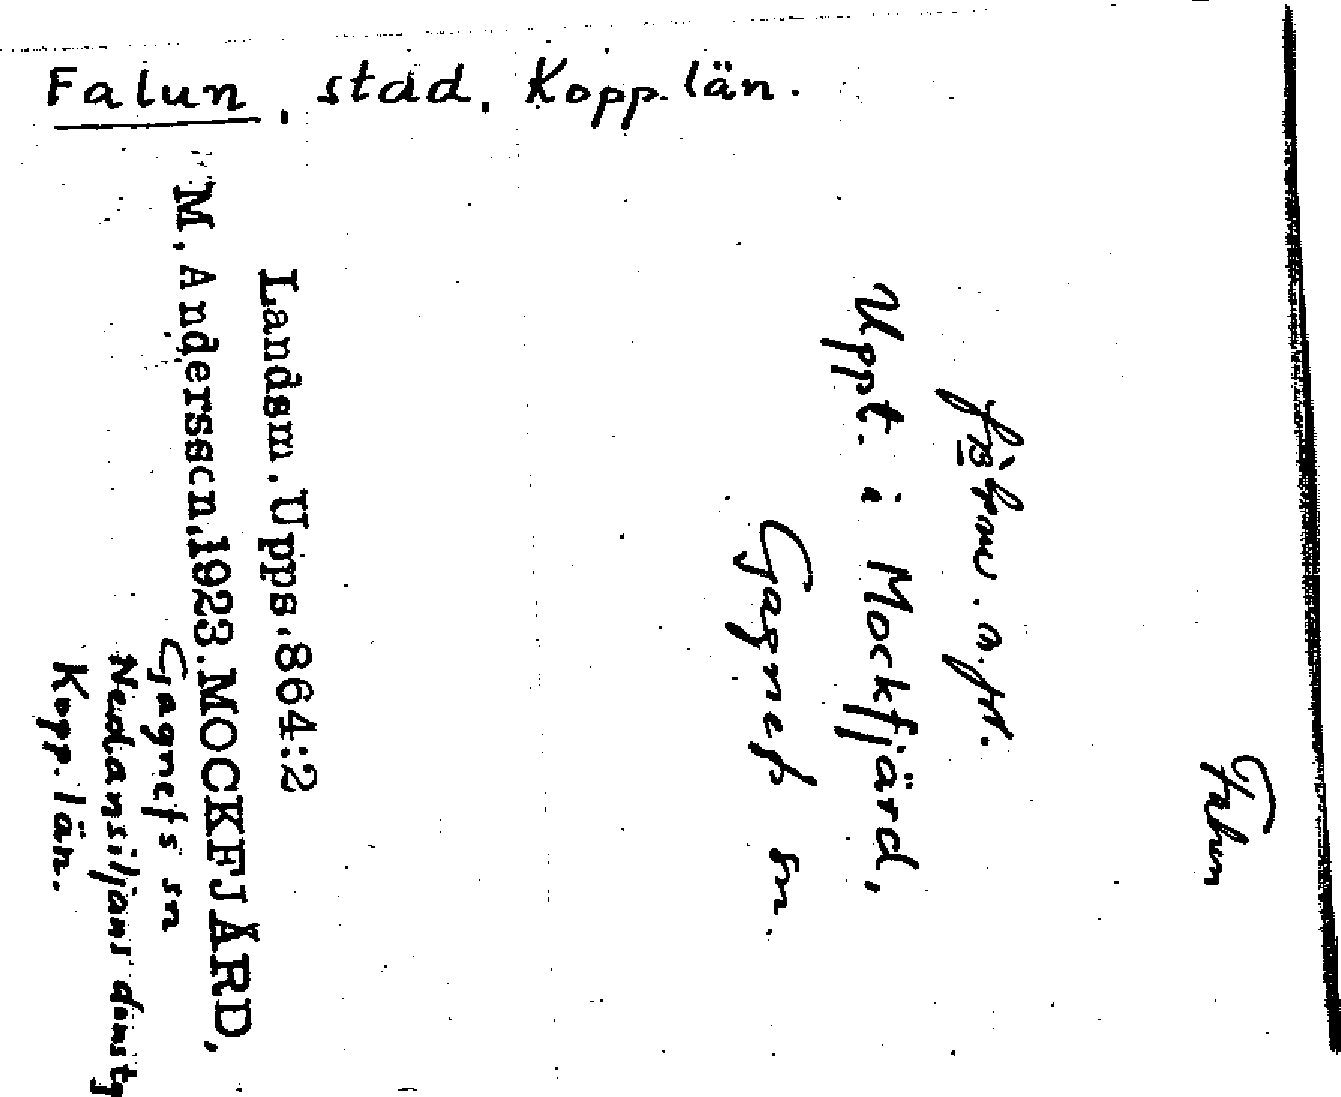 Falun, stad, Kopp. län.
Falun
Uppt. i Mockfjärd,
Gagnefs sn.
Landsm. Upps. 864:2
M. Andersson, 1923. MOCKFJÄRD,
Gagnefs sn
Nedansiljans domsg
Kopp. län.